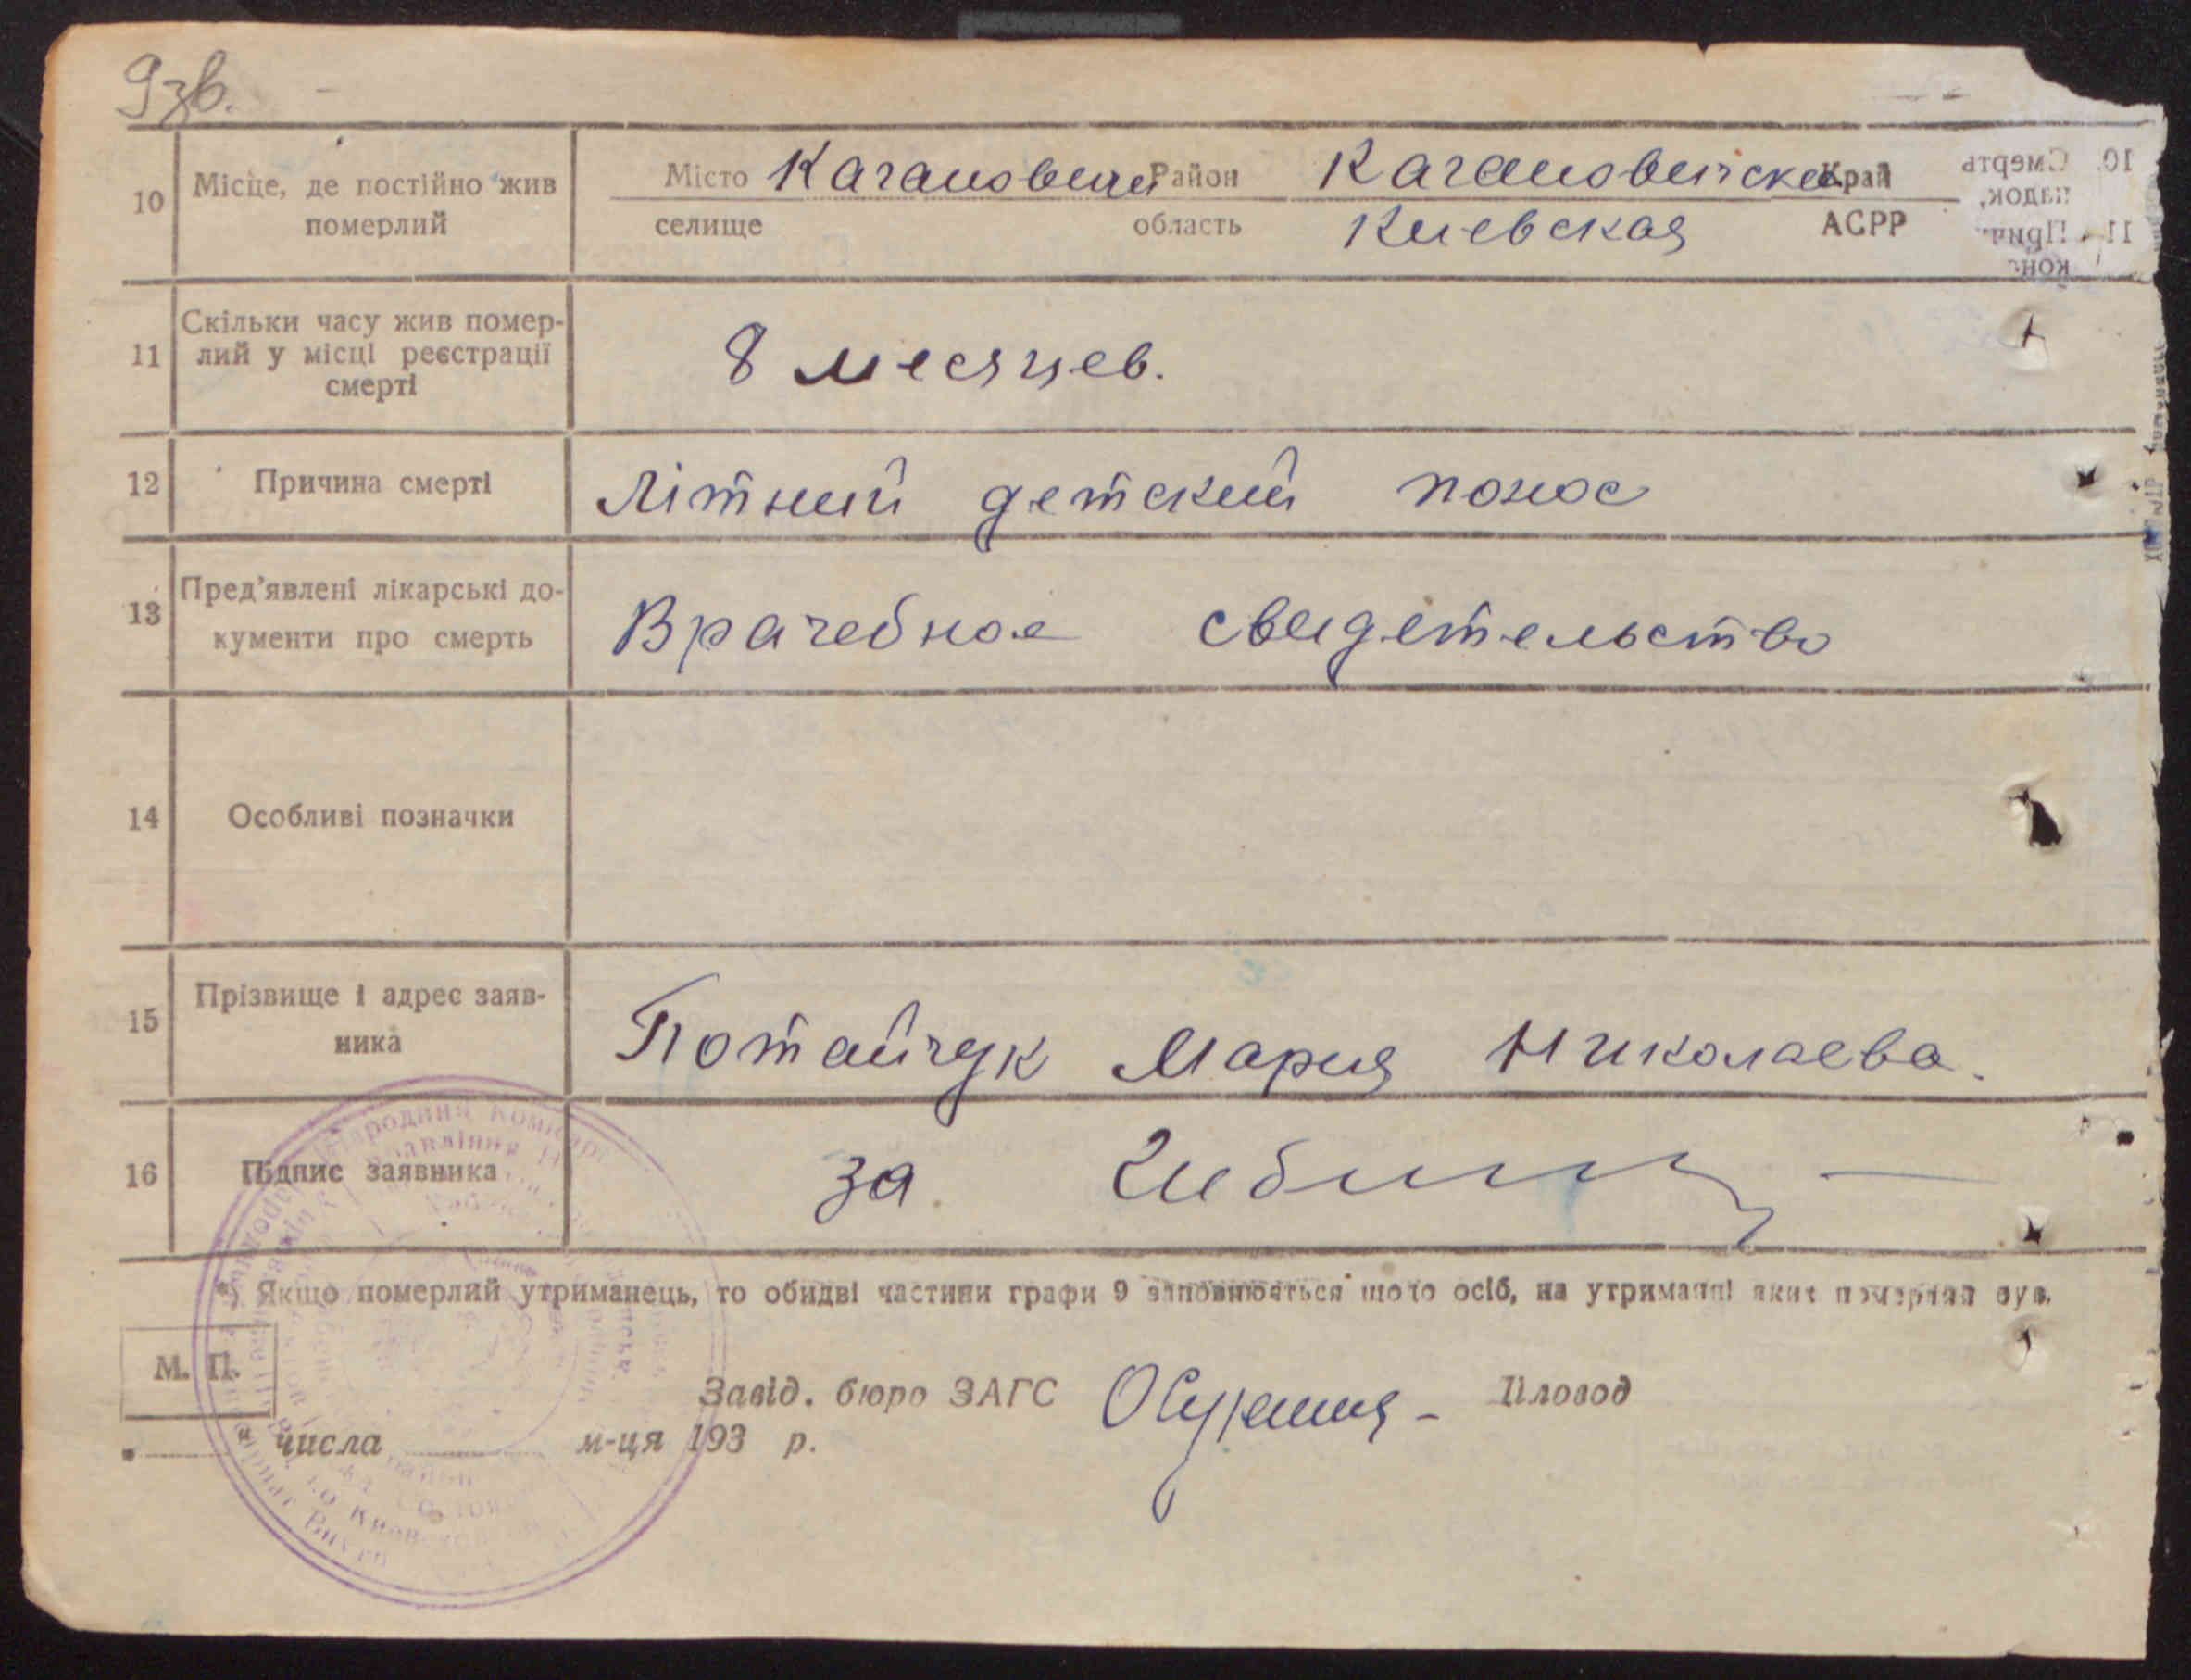 9зв.
10 Місце, де постійно жив померлий
Місто Кагановичи Район Кагановическ Край
селище область Киевская АСРР
11 Скільки часу жив помер-
лий у місці реєстрації
смерті
8 месяцев.
12 Причина смерті
Літний детский понос
13 Пред'явлені лікарські до-
кументи про смерть
Врачебное свидетельство
14 Особливі позначки
15 Прізвище і адрес заяв-
ника
Потайчук Мария Николаева.
16 Підпис заявника
за
*) Якщо померлий утриманець, то обидві частини графи 9 заповнюються щодо осіб, на утриманні яких померлий був.
М. П.
Завід. бюро ЗАГС Діловод
" числа м-ця 193 р.
10. Смерть
11